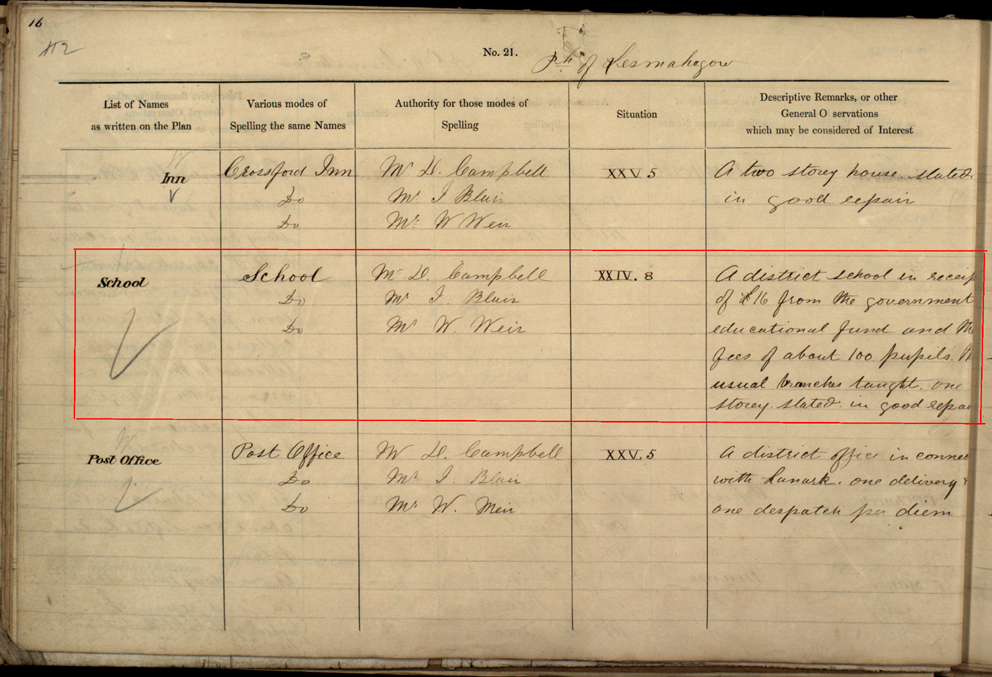 16
No. 21. Ph. of Lesmahagow
List of Names
as written on the Plan
Various modes of
Spelling the same Names
Authority for those modes of
Spelling
Situation
Descriptive Remarks, or other
General O servations
which may be considered of Interest
Inn
Crossford Inn
Do
Do
Mr D. Campbell
Mr J Blair
Mr W Weir
XXV 5
A two storey house slated
in good repair
School
School
Do
Do
Mr D. Campbell
Mr J. Blair
Mr W. Weir
XXIV. 8
A district school in receip
of £16 from the government
educational fund and the
fees of about 100 pupils.
usual branches taught. one
storey. slated in good repai
Post Office
Post Office
Do
Do
Mr D. Campbell
Mr J. Blair
Mr W. Weir
XXV. 5
A district office in connec
with Lanark. one delivery
one despatch per diem